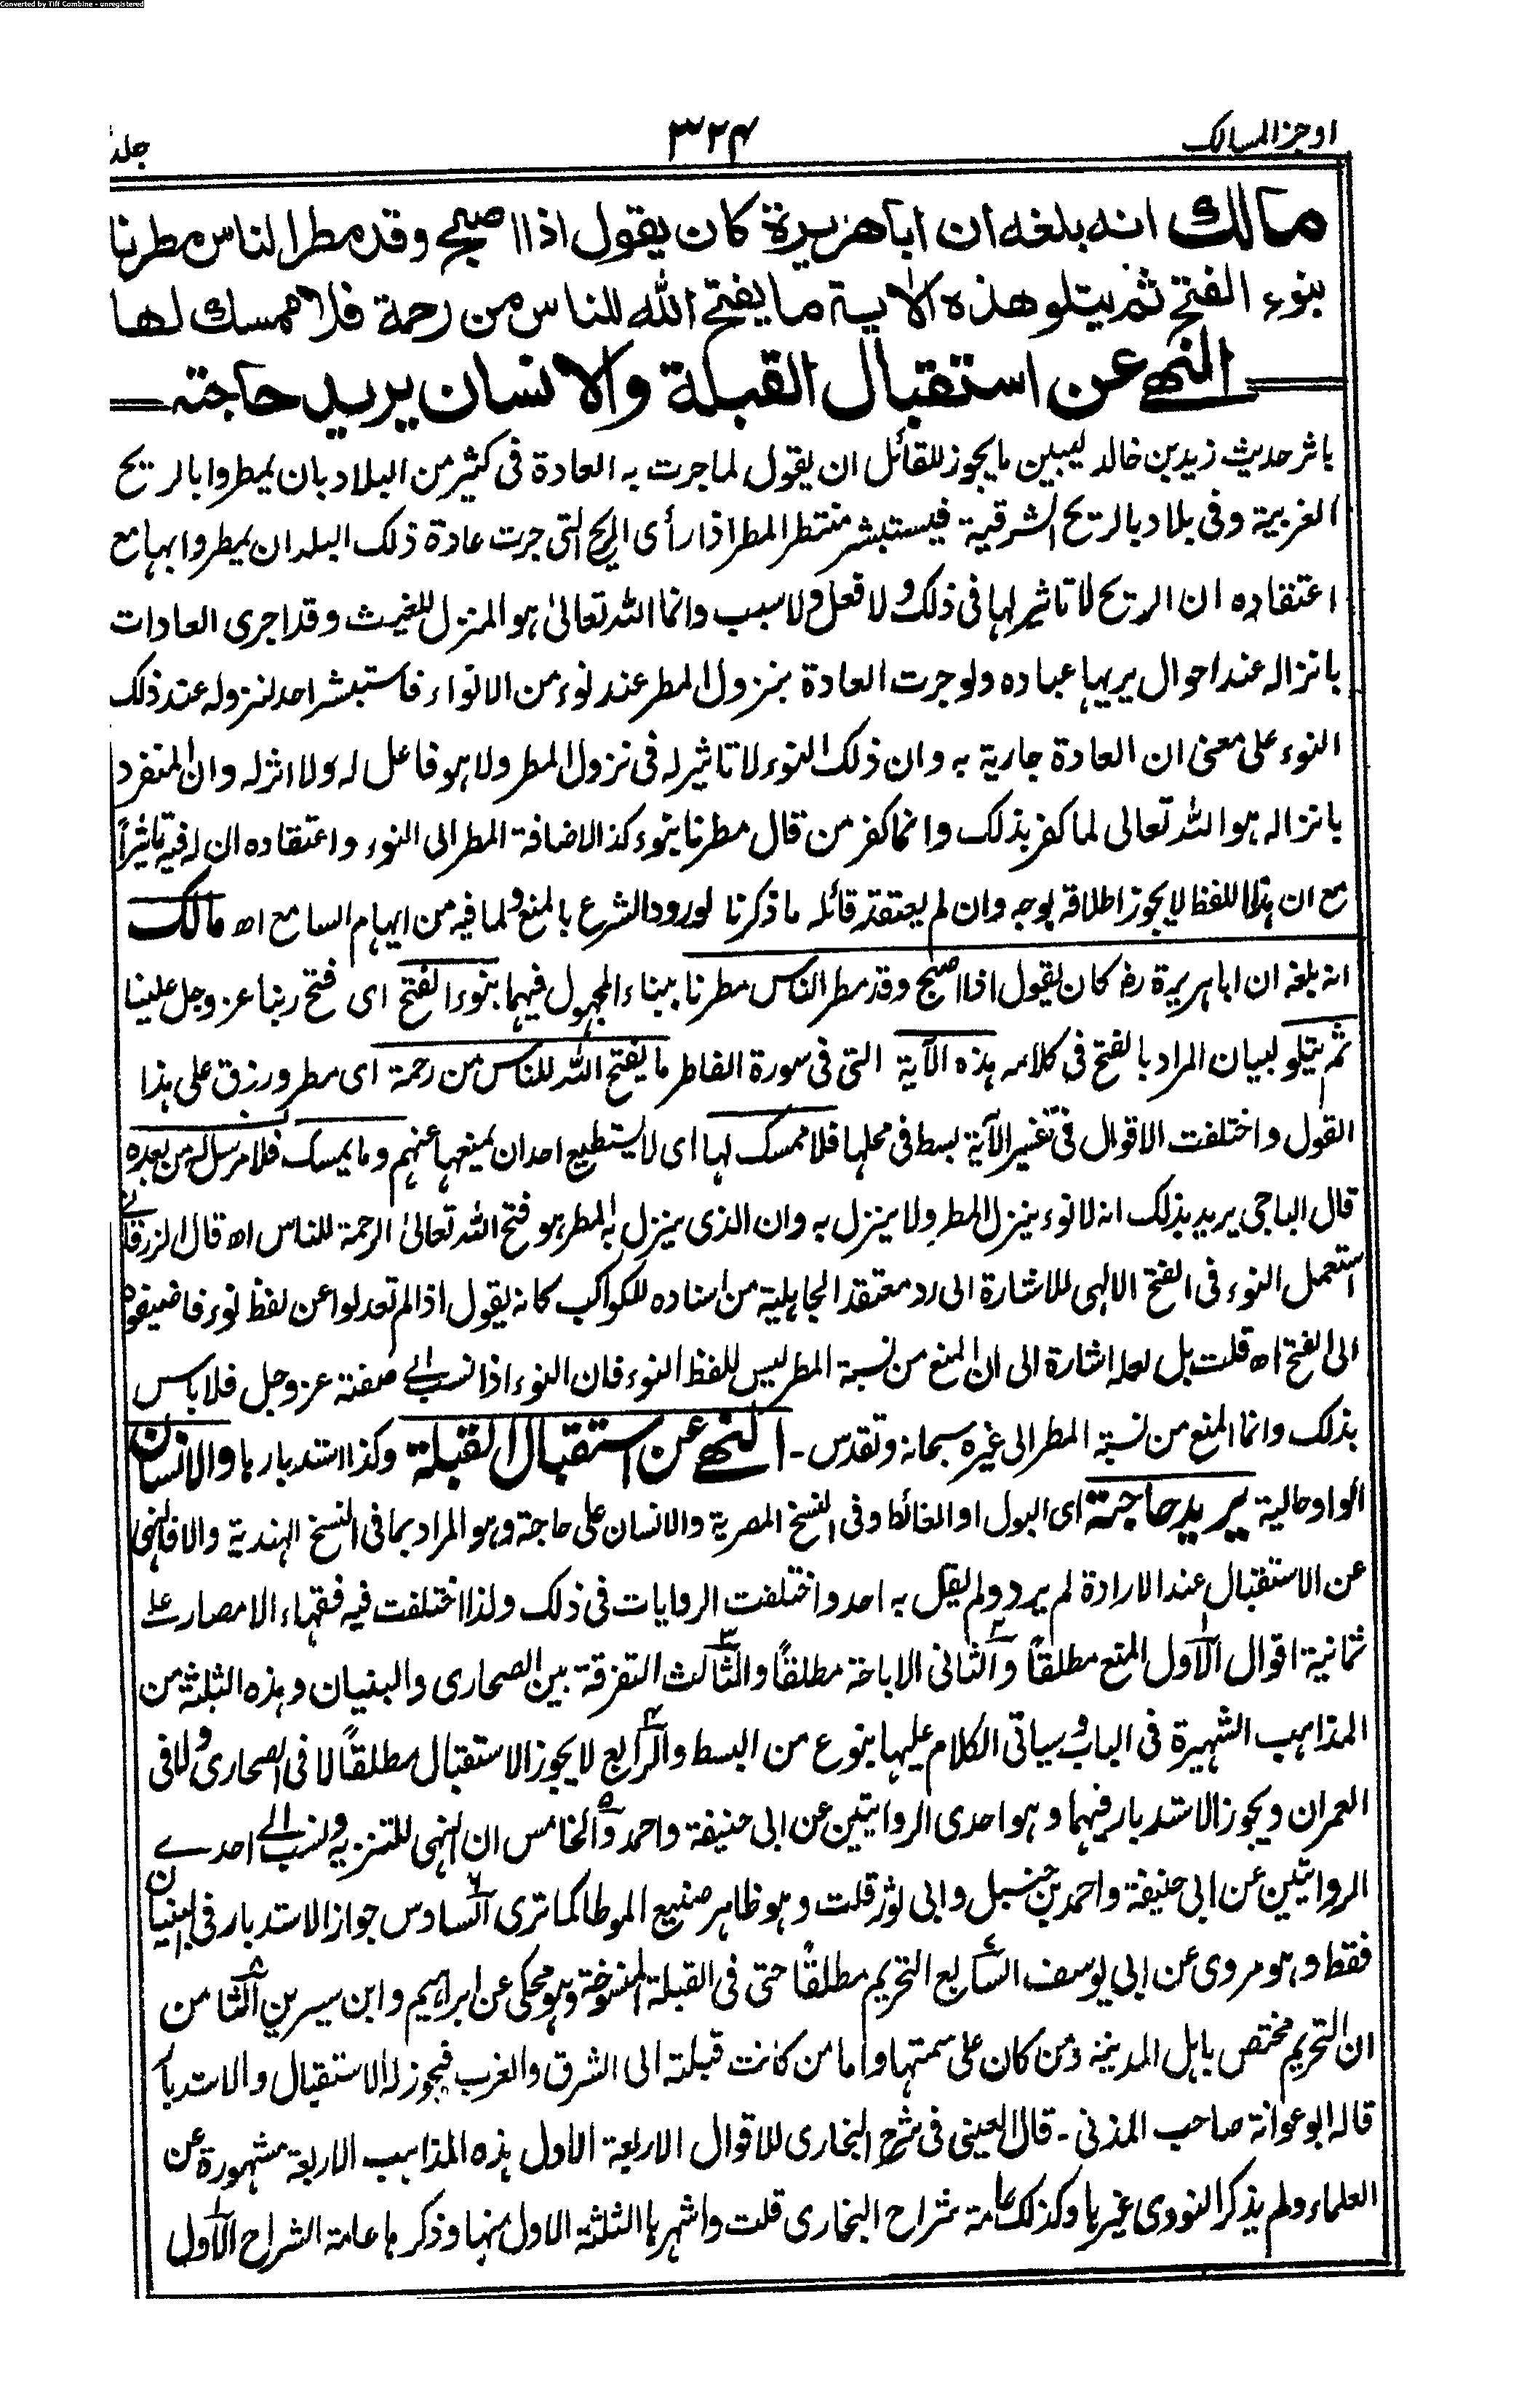 Converted by Tiff Combine - unregistered
اوجز المسالك ٣٢٤ جلد
مالك انه بلغه ان ابا هريرة كان يقول اذا اصبح وقد مطر الناس مطرنا
بنوء الفتح ثم يتلو هذه الاية ما يفتح الله للناس من رحمة فلا ممسك لها
النهى عن استقبال القبلة والانسان يريد حاجته
باثر حديث زيد بن خالد ليبين ما يجوز للقائل ان يقول لما جرت به العادة فى كثير من البلاد بان يمطروا بالريح
الغربية وفى بلاد بالريح الشرقية فيستبشر منتظر المطر اذا رأى الريح التى جرت عادة ذلك البلد ان يمطروا بها مع
اعتقاده ان الريح لا تاثير لها فى ذلك ولا فعل ولا سبب وانما الله تعالىٰ هو المنزل للغيث وقد اجرى العادات
بانزاله عند احوال يريها عباده ولو جرت العادة بنزول المطر عند نوء من الانواء فاستبشر احد لنزوله عند ذلك
النوء على معنى ان العادة جارية به وان ذلك النوء لا تاثير له فى نزول المطر ولا هو فاعل له ولا اثر له وان المنفرد
بانزاله هو الله تعالى لما كفر بذلك وانما كفر من قال مطرنا بنوء كذا لاضافة المطر الى النوء واعتقاده ان له فيه تاثيراً
مع ان هذا اللفظ لا يجوز اطلاقه بوجه وان لم يعتقد قائله ما ذكرنا لورود الشرع بالمنع ولما فيه من ايهام السامع اه مالك
انه بلغه ان ابا هريرة رض كان يقول اذا اصبح وقد مطر الناس مطرنا ببناء المجهول فيهما بنوء الفتح اى فتح ربنا عز وجل علينا
ثم يتلو لبيان المراد بالفتح فى كلامه هذه الآية التى فى سورة الفاطر ما يفتح الله للناس من رحمة اى مطر ورزق على هذا
القول واختلفت الاقوال فى تفسير الآية بسط فى محلها فلا ممسك لها اى لا يستطيع احد ان يمنعها عنهم وما يمسك فلا مرسل له من بعده
قال الباجى يريد بذلك انه لا نوء ينزل المطر ولا ينزل به وان الذى ينزل به المطر هو فتح الله تعالىٰ الرحمة للناس اه قال الزرقانے
استعمل النوء فى الفتح الالهى للاشارة الى رد معتقد الجاهلية من اسناده للكواكب كانه يقول اذا لم تعدلوا عن لفظ نوء فاضيفوه
الى الفتح اه قلت بل لعله اشارة الى ان المنع من نسبة المطر ليس للفظ النوء فان النوء اذا نسب الے صفته عز وجل فلا باس
بذلك وانما المنع من نسبة المطر الى غيره سبحانه وتقدس - النهى عن استقبال القبلة وكذا استدبارها والانسان
الواو حالية يريد حاجته اى البول او الغائط وفى النسخ المصرية والانسان على حاجة وهو المراد بما فى النسخ الهندية والا فالنهى
عن الاستقبال عند الارادة لم يرد ولم يقل به احد واختلفت الروايات فى ذلك ولذا اختلفت فيه فقهاء الامصار علے
ثمانية اقوال الاول المنع مطلقاً والثانى الاباحة مطلقاً والثالث التفرقة بين الصحارى والبنيان وهذه الثلثة من
المذاهب الشهيرة فى الباب وسياتى الكلام عليها بنوع من البسط والرابع لا يجوز الاستقبال مطلقاً لا فى الصحارى ولا فى
العمران ويجوز الاستدبار فيهما وهو احدى الروايتين عن ابى حنيفة واحمد والخامس ان النهى للتنزيه ونسب الے احدے
الروايتين عن ابى حنيفة واحمد بن حنبل وابى ثور قلت وهو ظاهر صنيع الموطا كما ترى السادس جواز الاستدبار فى البنيان
فقط وهو مروى عن ابى يوسف السابع التحريم مطلقاً حتى فى القبلة المنسوخة وهو محكى عن ابراهيم وابن سيرين الثامن
ان التحريم مختص باهل المدينة ومن كان على سمتها واما من كانت قبلته الى الشرق والغرب فيجوز له الاستقبال والاستدبار
قاله ابو عوانة صاحب المزنى - قال العينى فى شرح البخارى للاقوال الاربعة الاول هذه المذاهب الاربعة مشهورة عن
العلماء ولم يذكر النووى غيرها وكذلك عامة شراح البخارى قلت واشهرها الثلثة الاول منها وذكرها عامة الشراح الاول